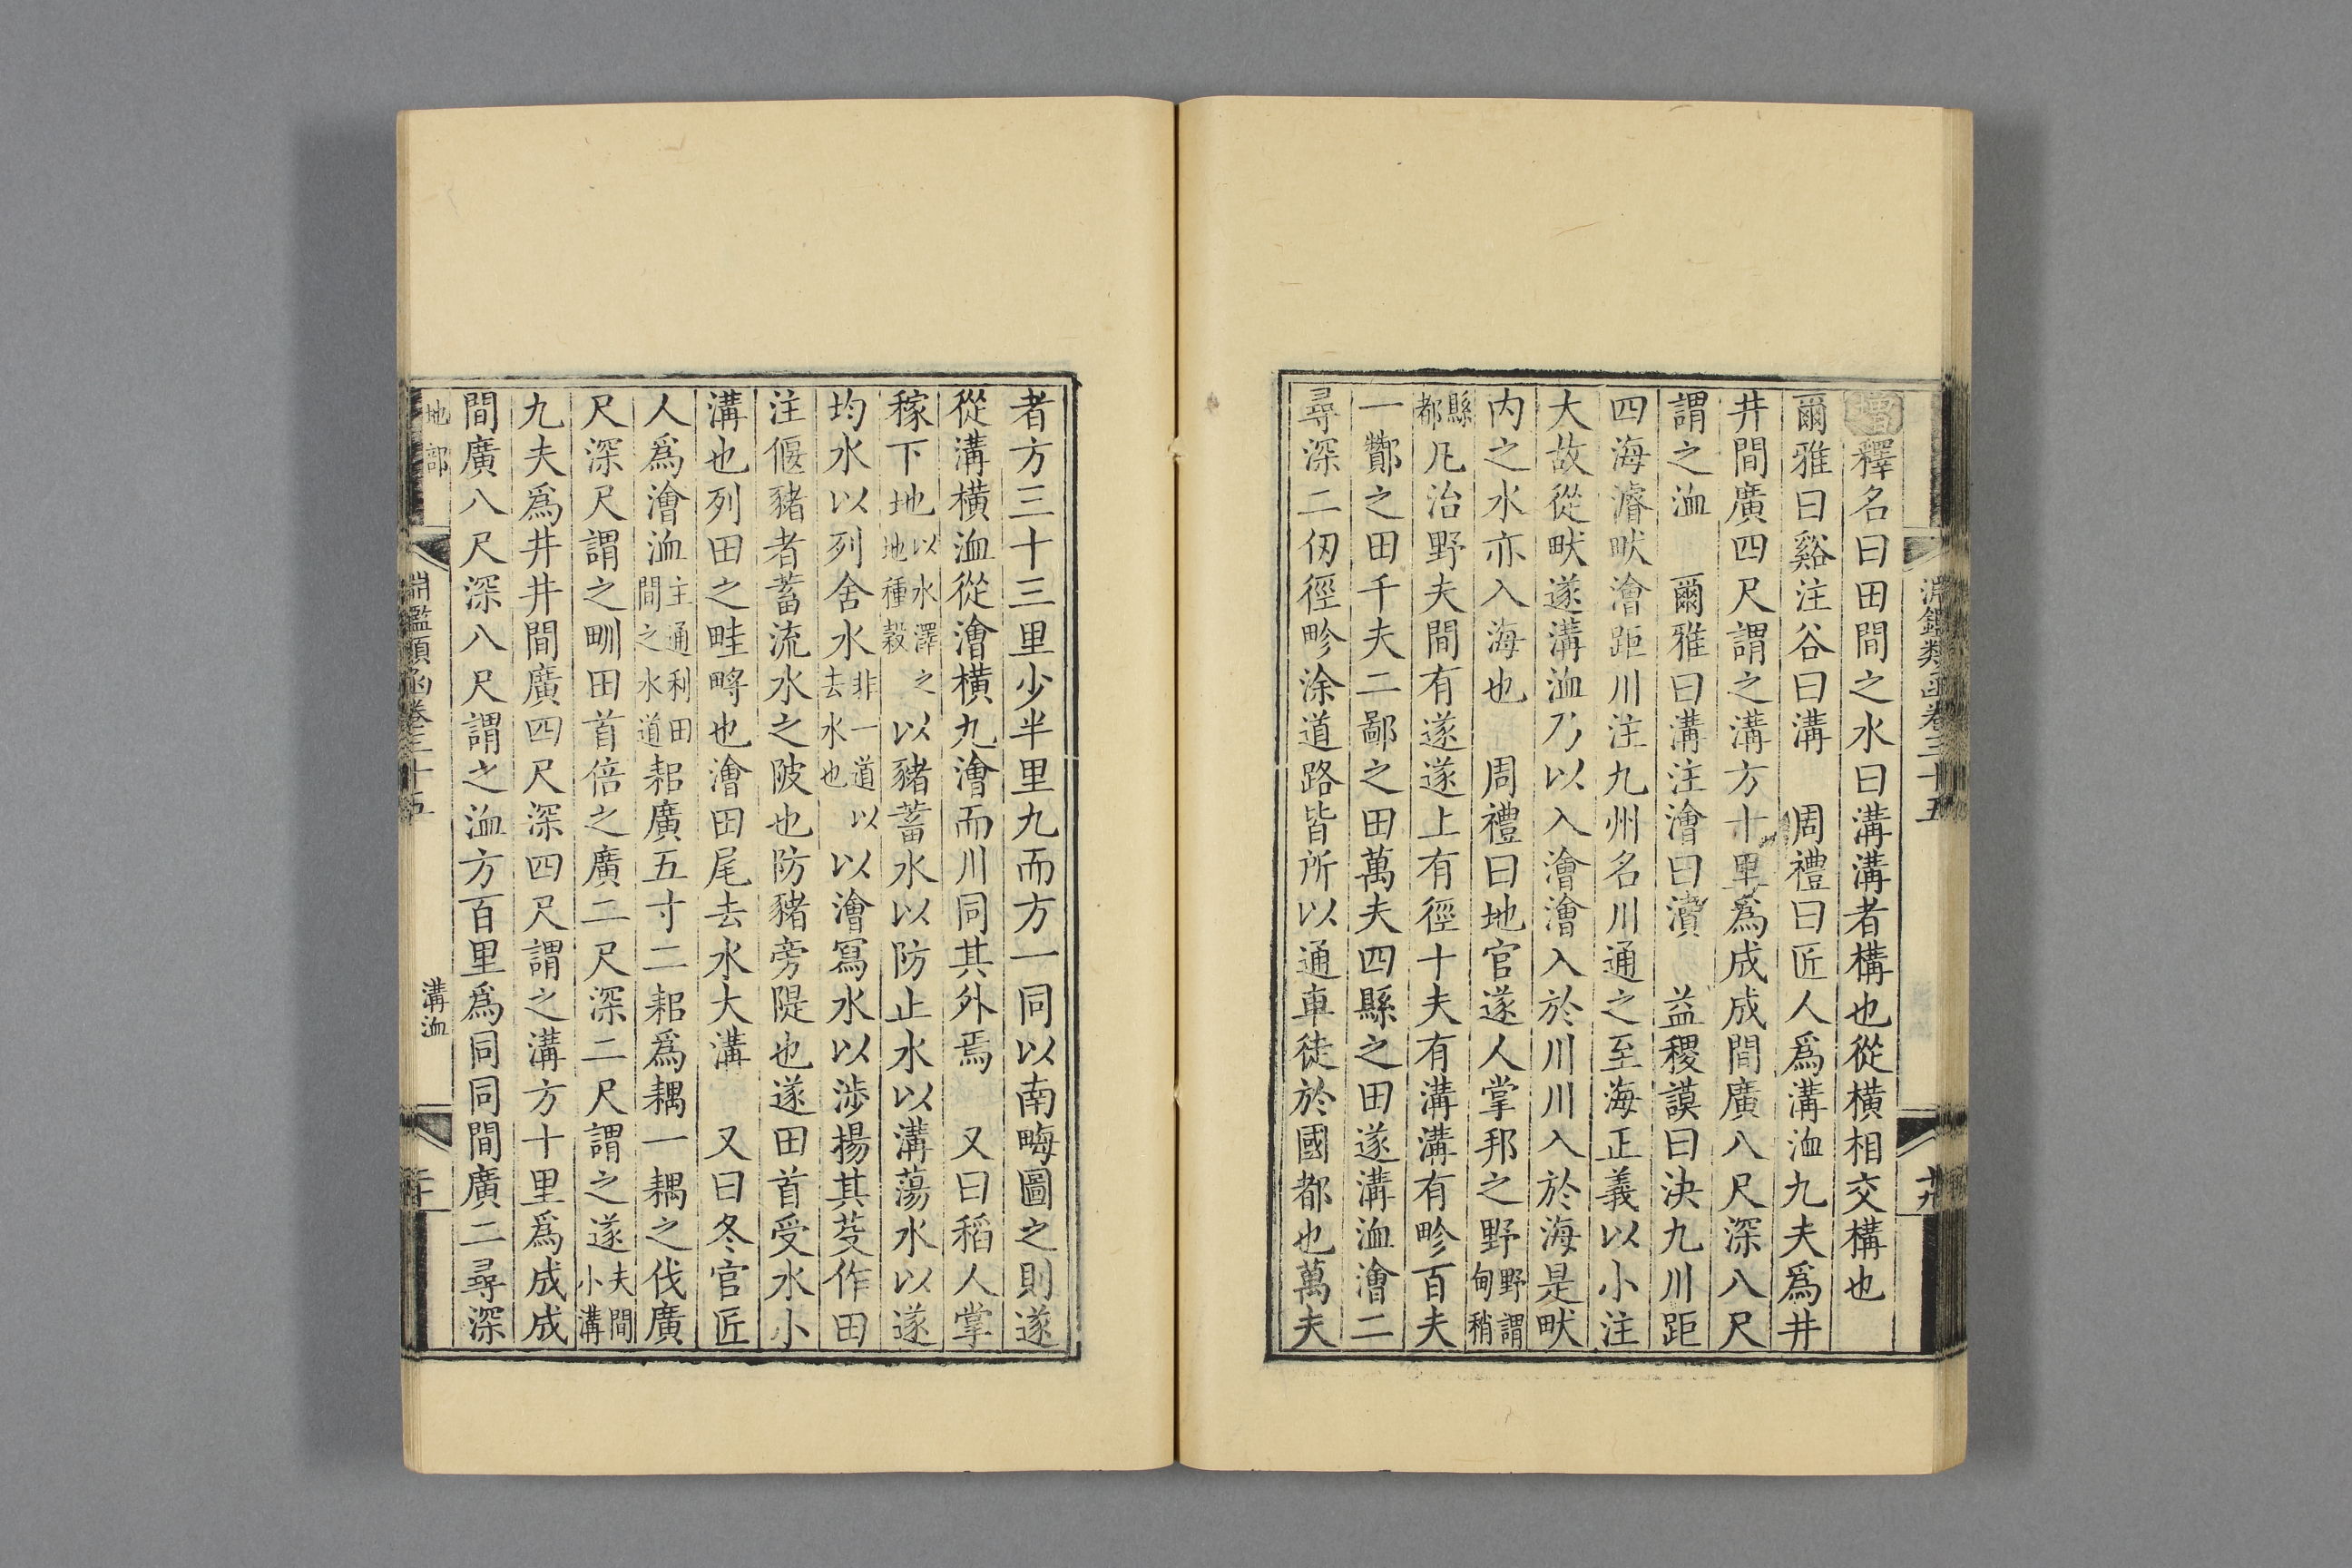 淵鑑類函卷三十五
十九
增釋名曰田間之水曰溝溝者構也從橫相交構也
爾雅曰谿注谷曰溝 周禮曰匠人爲溝洫九夫爲井
井間廣四尺謂之溝方十里爲成成間廣八尺深八尺
謂之洫 爾雅曰溝注澮曰瀆 益稷謨曰決九川距
四海濬畎澮距川注九州名川通之至海正義以小注
大故從畎遂溝洫乃以入澮澮入於川川入於海是畎
内之水亦入海也 周禮曰地官遂人掌邦之野野謂甸稍
縣都凡治野夫間有遂遂上有徑十夫有溝溝有畛百夫
一酇之田千夫二鄙之田萬夫四縣之田遂溝洫澮二
尋深二仞徑畛涂道路皆所以通車徒於國都也萬夫
者方三十三里少半里九而方一同以南畮圖之則遂
從溝橫洫從澮橫九澮而川同其外焉 又曰稻人掌
稼下地以水澤之地種穀以豬蓄水以防止水以溝蕩水以遂
均水以列舍水非一道以去水也以澮寫水以涉揚其芟作田
注偃豬者蓄流水之陂也防豬旁隄也遂田首受水小
溝也列田之畦㽟也澮田尾去水大溝 又曰冬官匠
人爲澮洫主通利田間之水道耜廣五寸二耜爲耦一耦之伐廣
尺深尺謂之甽田首倍之廣二尺深二尺謂之遂夫間小溝
九夫爲井井間廣四尺深四尺謂之溝方十里爲成成
間廣八尺深八尺謂之洫方百里爲同同間廣二尋深
地部
淵鑑類函卷三十五
溝洫
二十